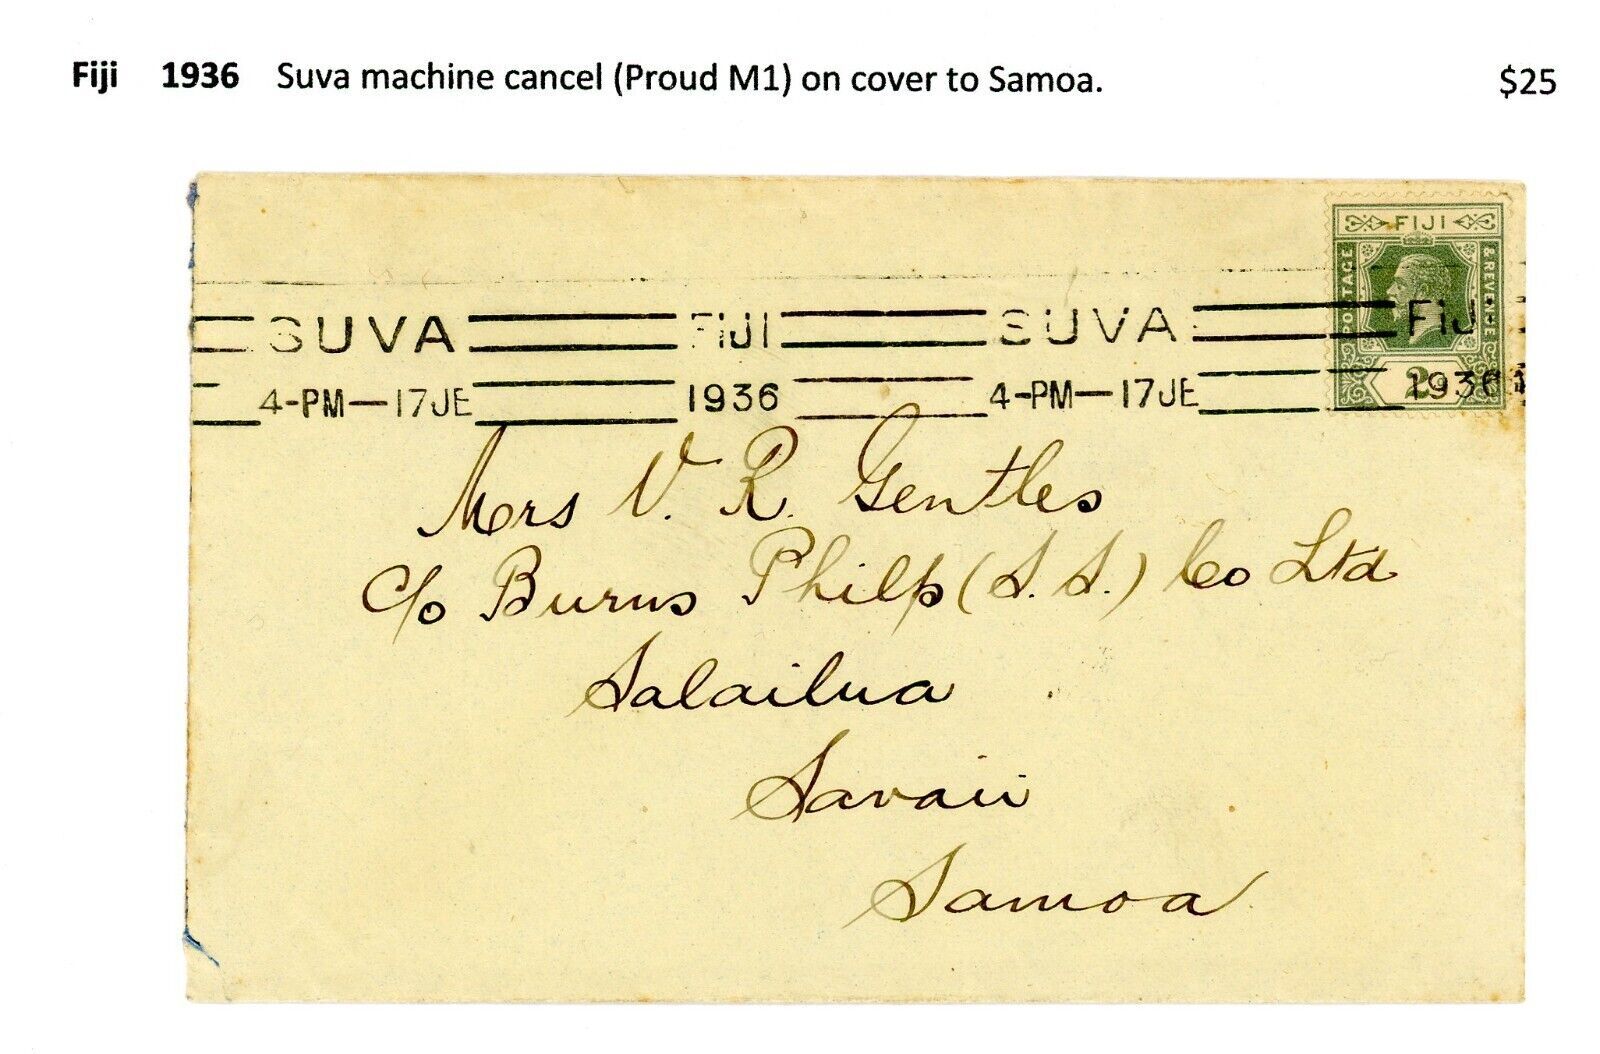 Fiji 1936 Suva machine cancel (Proud M1) on cover to Samoa. $25
FIJI
POSTAGE & REVENUE
SUVA FIJI SUVA FIJI
4-PM—17JE 1936 4-PM—17JE 1936
2d
Mrs V. R. Gentles
c/o Burns Philp (S. S.) Co Ltd
Salailua
Savaii
Samoa